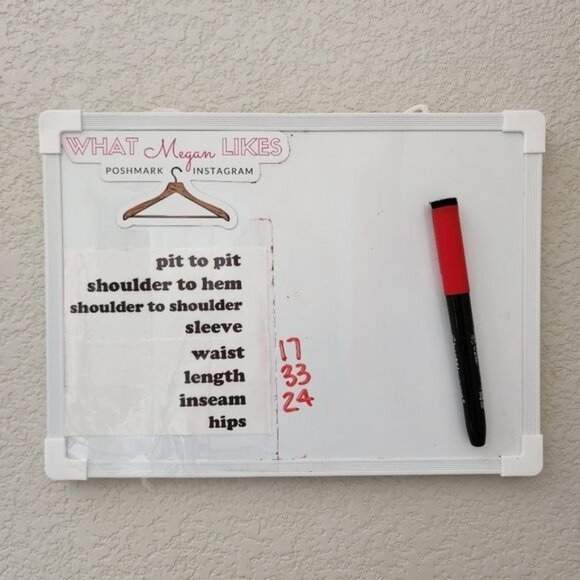 WHAT Megan LIKES
POSHMARK INSTAGRAM
pit to pit
shoulder to hem
shoulder to shoulder
sleeve
waist 17
length 33
inseam 24
hips